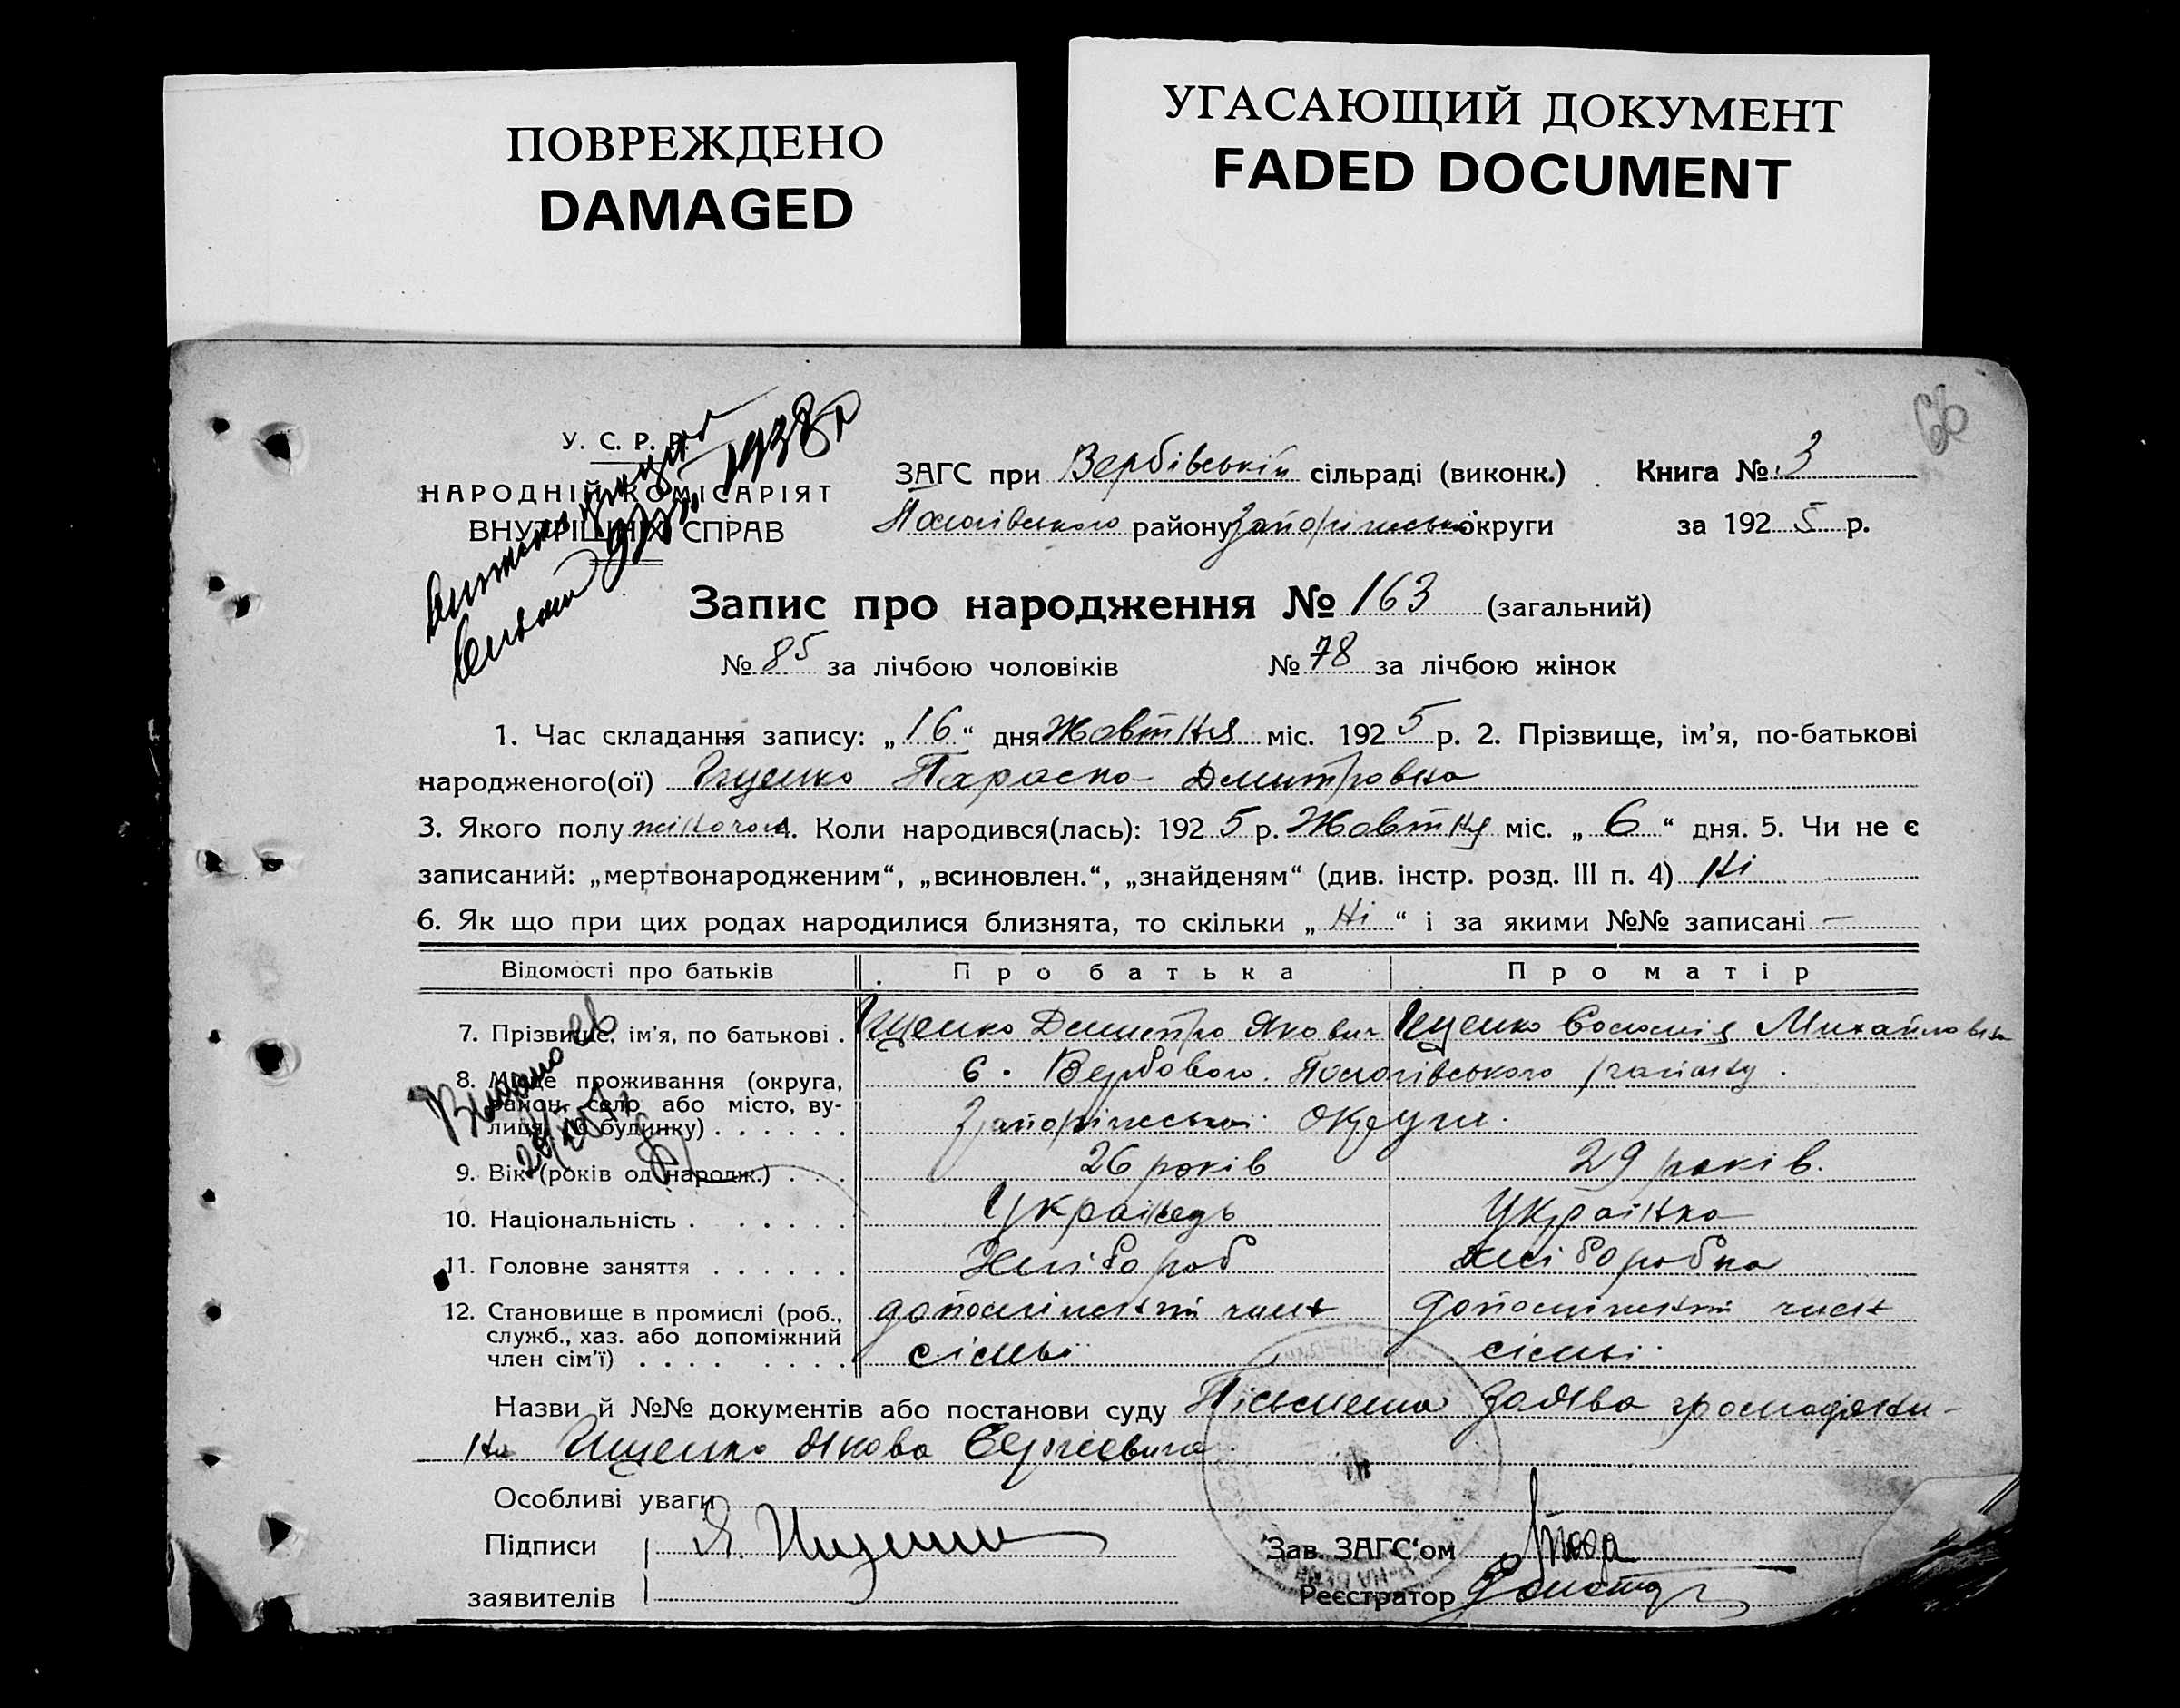 ПОВРЕЖДЕНО
DAMAGED
УГАСАЮЩИЙ ДОКУМЕНТ
FADED DOCUMENT
66
У. С. Р. Р.
НАРОДНІЙ КОМІСАРІЯТ
ВНУТРІШНІХ СПРАВ
1938 р
ЗАГС при Вербівській сільраді (виконк.) Книга № 3
Пологівського району Запоріжської округи за 1925 р.
Запис про народження № 163 (загальний)
№ 85 за лічбою чоловіків № 78 за лічбою жінок
1. Час складання запису: „16“ дня Жовтня міс. 1925 р. 2. Прізвище, ім'я, по-батькові
народженого(ої) Іщенко Параска Дмитровна
3. Якого полу жіночої 4. Коли народився(лась): 1925 р. Жовтня міс. „6“ дня. 5. Чи не є
записаний: „мертвонародженим“, „всиновлен.“, „знайденям“ (див. інстр. розд. III п. 4) Ні
6. Як що при цих родах народилися близнята, то скільки „Ні“ і за якими №№ записані —
Відомості про батьків Про батька Про матір
7. Прізвище, ім'я, по батькові . Іщенко Дмитро Якович Іщенко Соломія Михайловна
8. Місце проживання (округа, район, село або місто, вулиця, № будинку) . . . . . . с. Вербового Пологівського району
Запоріжської округи.
Видано
9. Вік (років од народж.) . . . 26 років 29 років.
10. Національність . . . . . . Українець Українка
11. Головне заняття . . . . . . Хлібороб хліборобка
12. Становище в промислі (роб., допоміжний член допоміжний член
служб., хаз. або допоміжний
член сім'ї) . . . . . . . . сімьї сімьї
Назви й №№ документів або постанови суду Пісьмена заява громадяни-
на Іщенко Якова Сергієвича.
Особливі уваги
Підписи Я. Ищенко Зав. ЗАГС'ом
заявителів Реєстратор